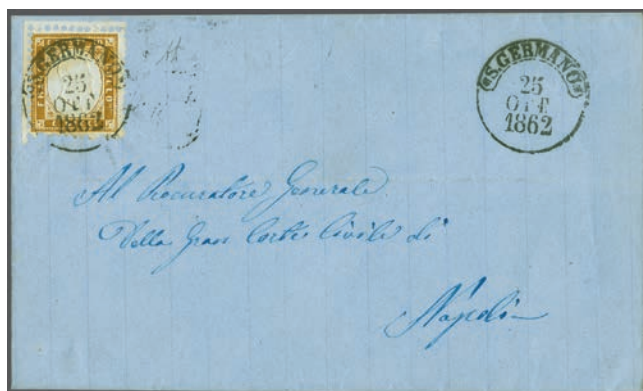 S. GERMANO
25
OTT
1862
S. GERMANO
25
OTT
1862
Al Procuratore Generale
Della Gran Corte Civile di
Napoli